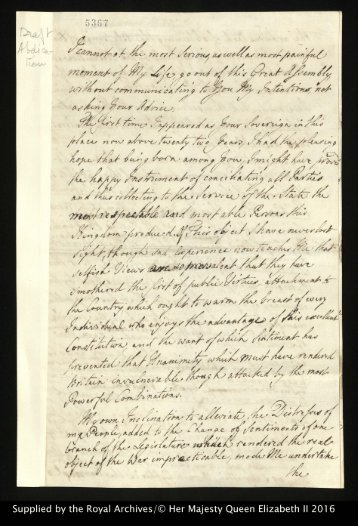 5367
Draft
Abdica
tion
I cannot at the most serious, as well as most painful
moment of My Life, go out of this Great Assembly
without communicating to You My Intentions, not
asking Your Advice.
The first time I appeared as Your Sovereign in this
place now above twenty two Years, I had the pleasing
hope that being born among You, I might have proved
the happy Instrument of conciliating all Parties
and thus collecting to the Service of the State the
most respectable and most able Persons this
Kingdom produced. Of this object I have never lost
sight, though sad experience now teaches Me that
selfish Views are so prevalent that they have
smothered the first of public Virtues, attachment to
the Country, which ought to warm the breast of every
Individual who enjoys the advantages of this excellent
Constitution, and the want of which Sentiment has
prevented that Unanimity which must have rendered
Britain invulnerable, though attacked by the most
Powerful Combinations.
My own Inclination to alleviate the Distresses of
my People, added to the Change of Sentiments of one
branch of the Legislature which rendered the real
object of the War impracticable, made Me undertake
the
Supplied by the Royal Archives/© Her Majesty Queen Elizabeth II 2016